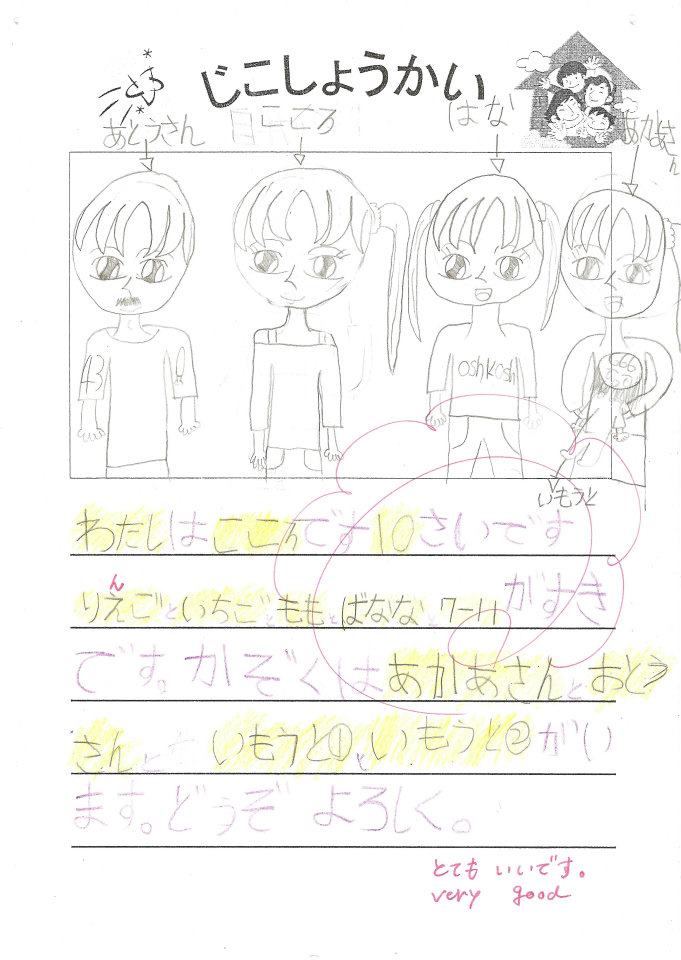 じこしょうかい
あとうさん
こころ
はな
あかあさん
43
oshkosh
いもうと
わたしはこころです10さいです
ん
りえごといちごとももとばななと7-11がすき
です。かぞくはあかあさんとおとう
さんと いもうと①といもうと②がい
ます。どうぞ よろしく。
とても いいです。
very good